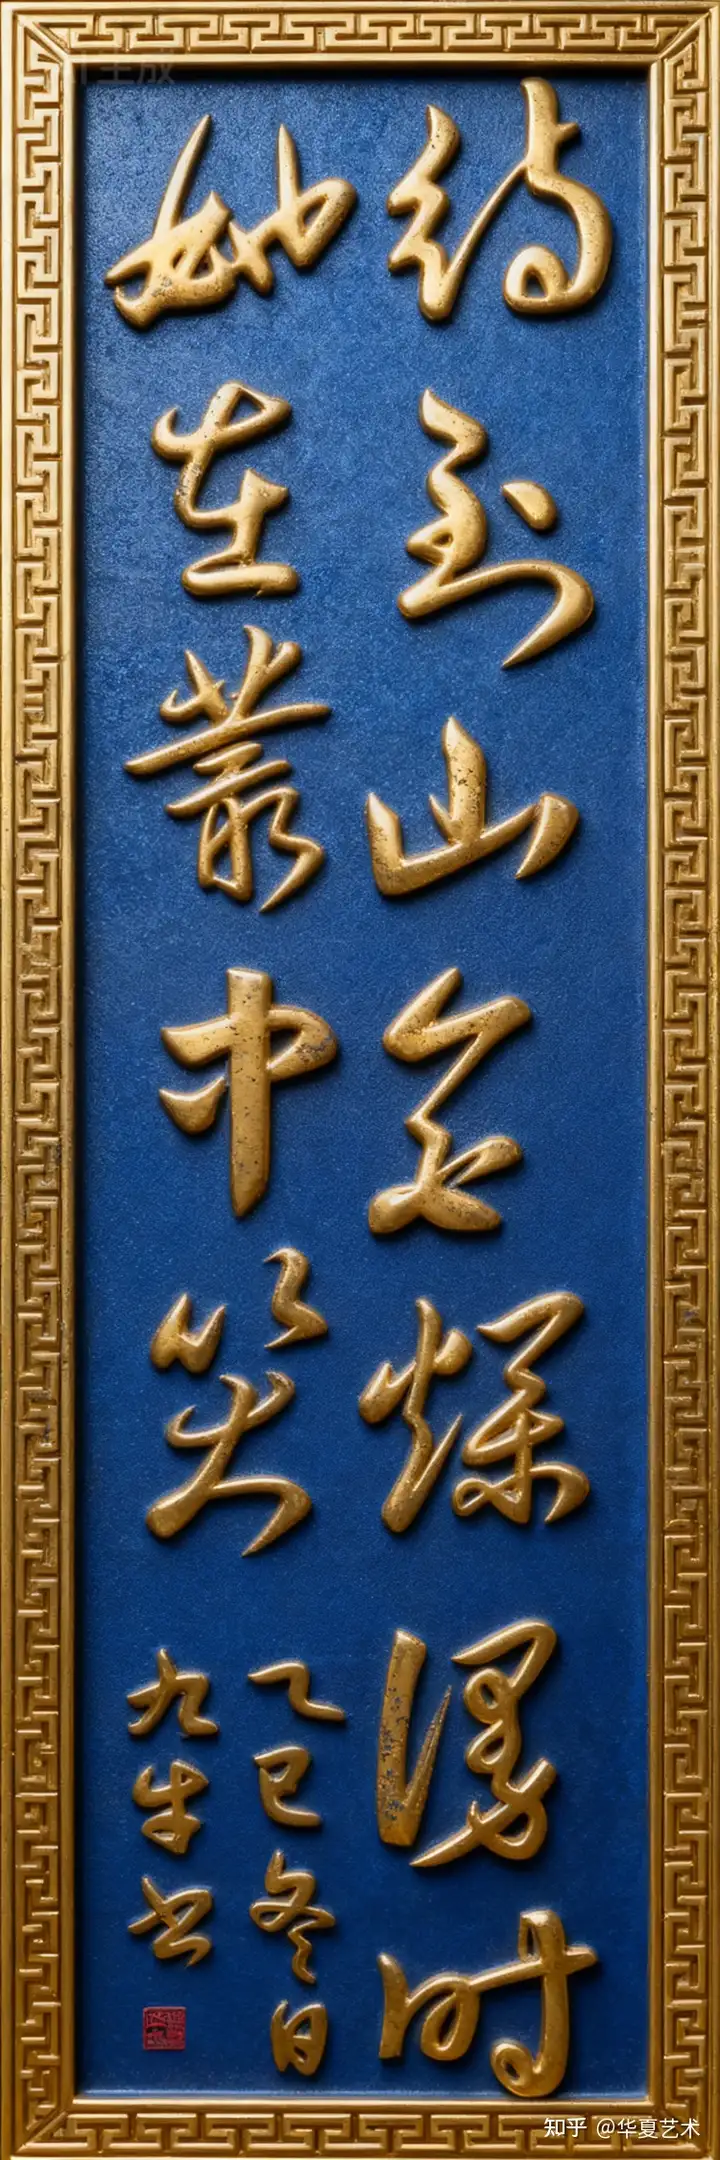 待到山花爛漫時
她在叢中笑
乙巳冬日
九牛書
知乎 @华夏艺术